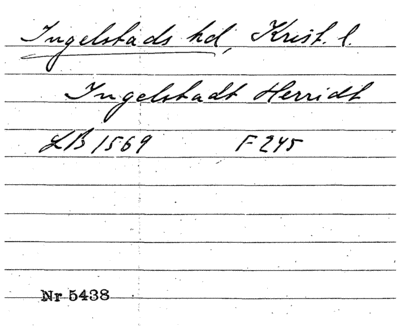 Ingelstads hd, Krist. l.
Ingelstadt Herridt
LB 1569 F 245
Nr 5438